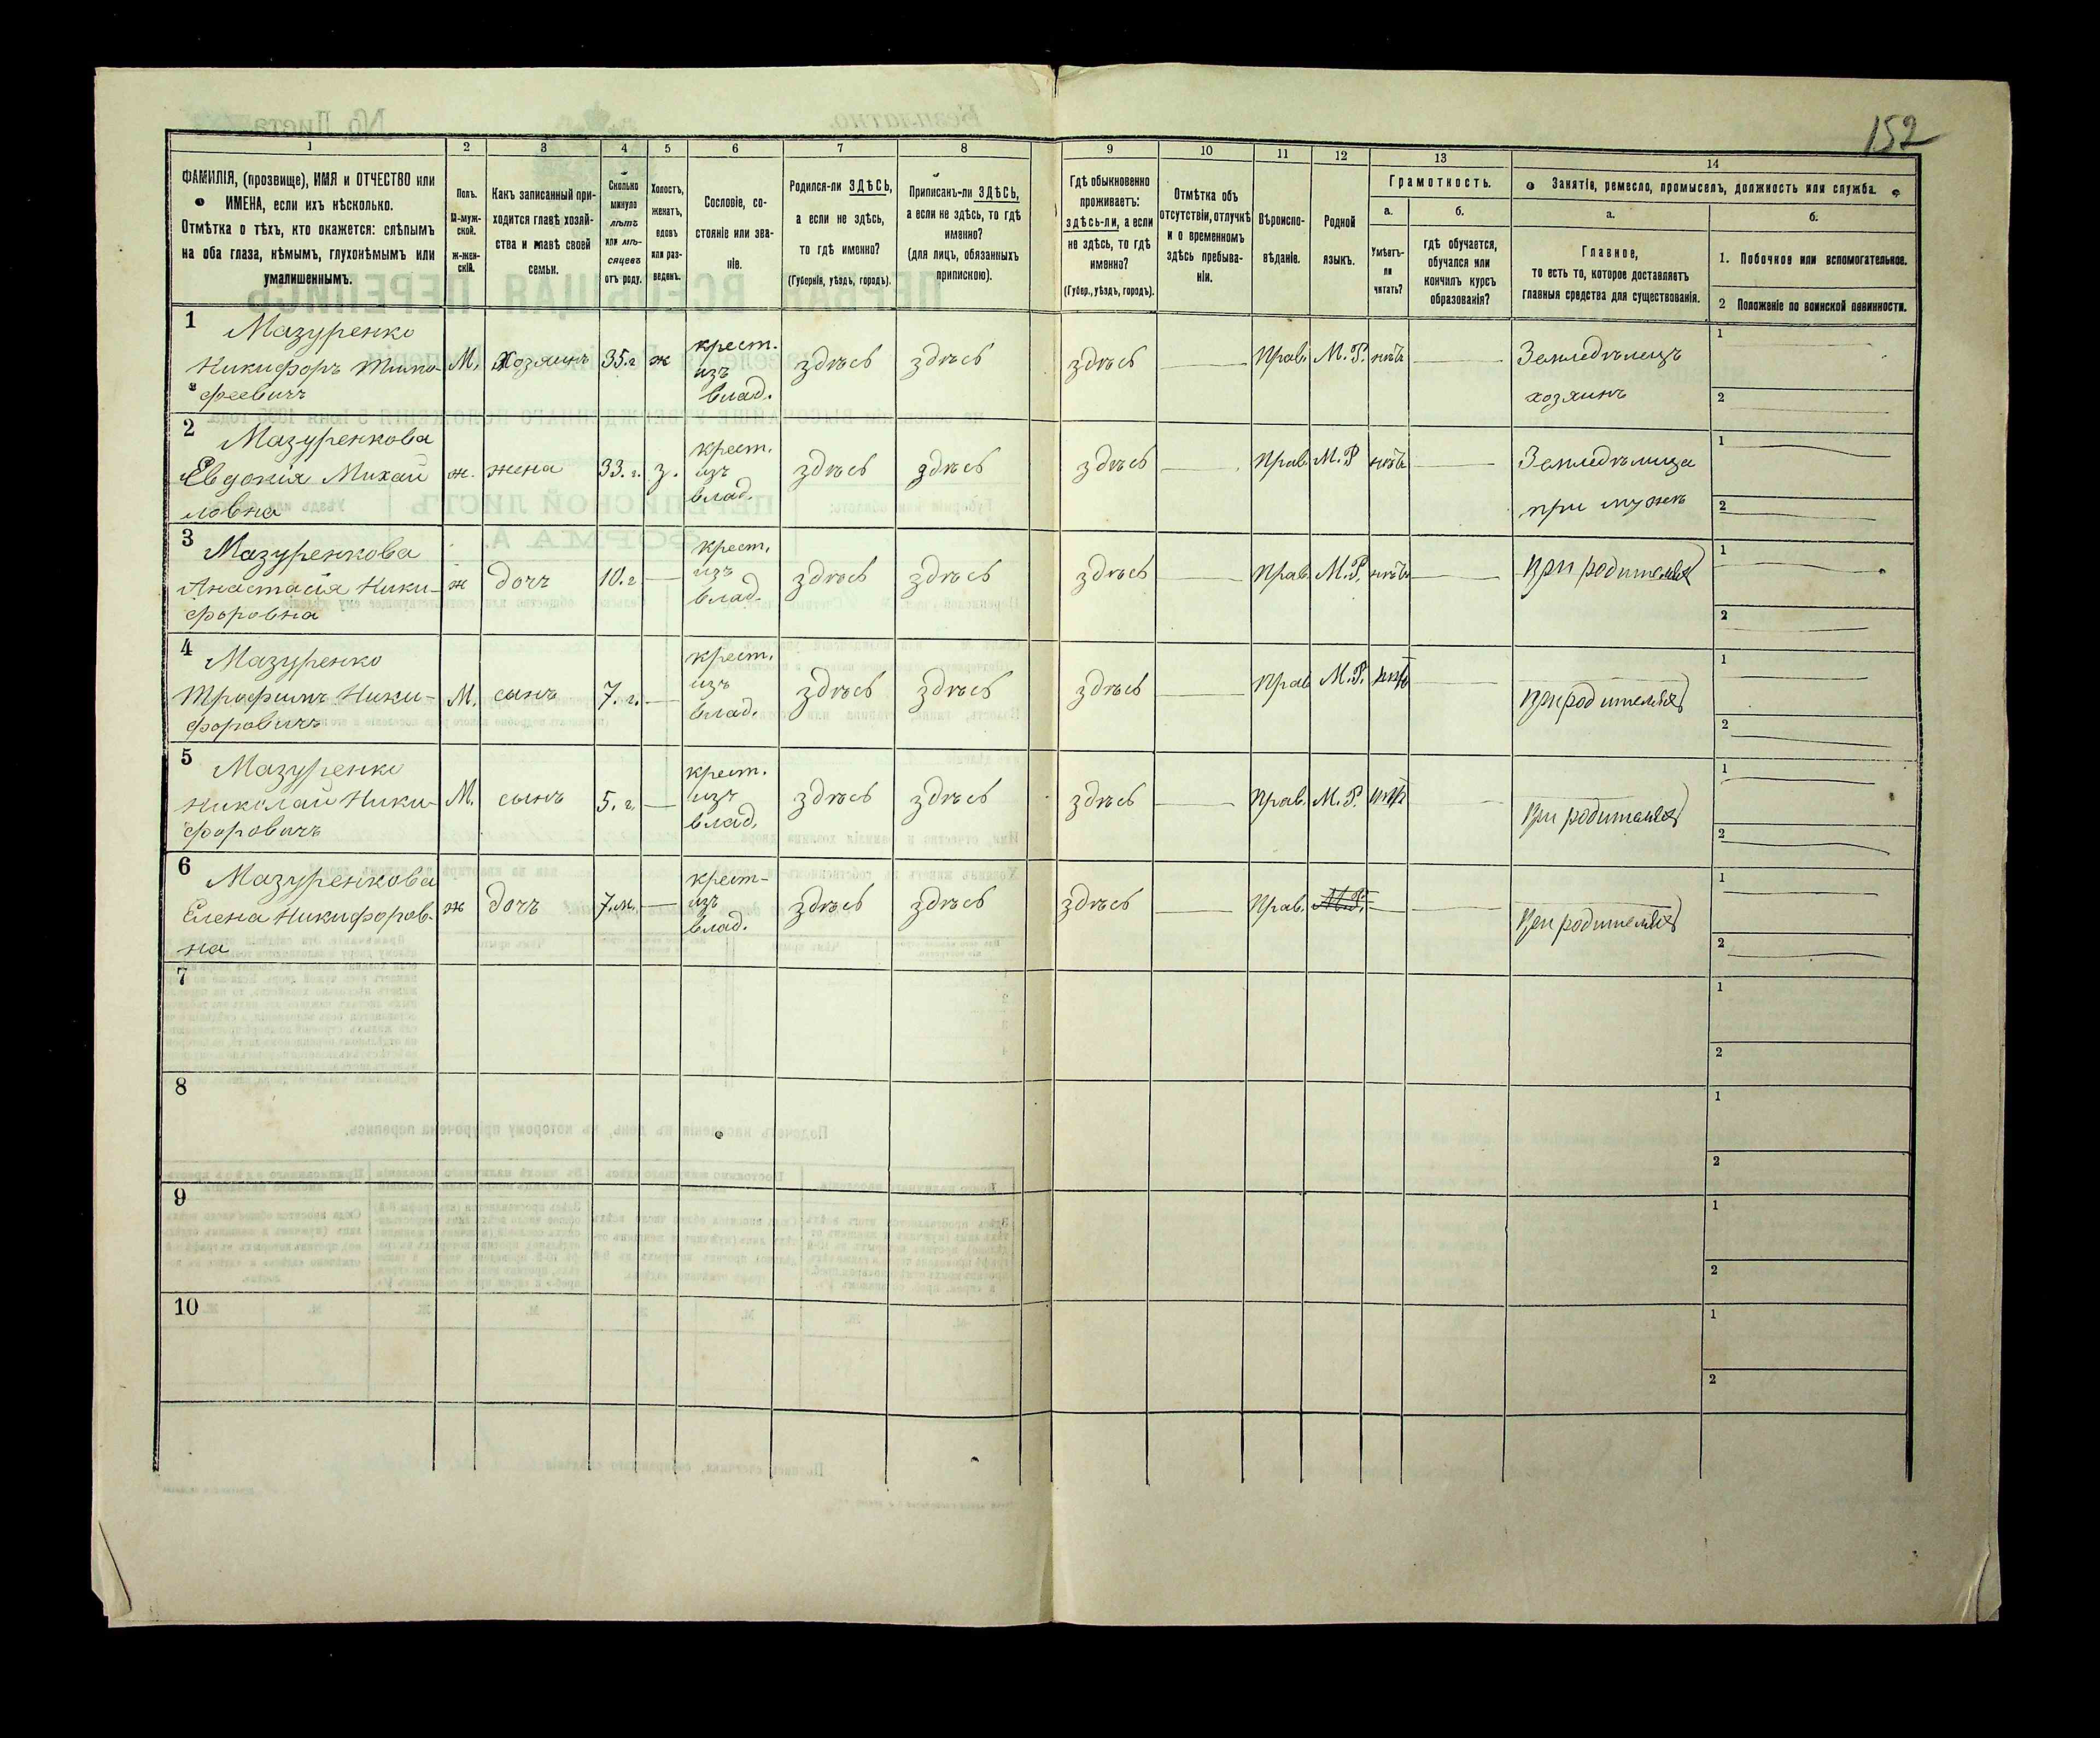 152
1 2 3 4 5 6 7 8 9 10 11 12 13 14
ФАМИЛІЯ, (прозвище), ИМЯ и ОТЧЕСТВО или
ИМЕНА, если ихъ нѣсколько.
Отмѣтка о тѣхъ, кто окажется: слѣпымъ
на оба глаза, нѣмымъ, глухонѣмымъ или
умалишеннымъ.
Полъ.
М-муж-
ской.
Ж-жен-
скій.
Какъ записанный при-
ходится главѣ хозяй-
ства и главѣ своей
семьи.
Сколько
минуло
лѣтъ
или мѣ-
сяцевъ
отъ роду.
Холостъ,
женатъ,
вдовъ
или раз-
веденъ.
Сословіе, со-
стояніе или зва-
ніе.
Родился-ли ЗДѢСЬ,
а если не здѣсь,
то гдѣ именно?
(Губернія, уѣздъ, городъ).
Приписанъ-ли ЗДѢСЬ,
а если не здѣсь, то гдѣ
именно?
(для лицъ, обязанныхъ
припискою).
Гдѣ обыкновенно
проживаетъ:
здѣсь-ли, а если
не здѣсь, то гдѣ
именно?
(Губер., уѣздъ, городъ).
Отмѣтка объ
отсутствіи, отлучкѣ
и о временномъ
здѣсь пребыва-
ніи.
Вѣроиспо-
вѣданіе.
Родной
языкъ.
Грамотность.
а.
Умѣетъ-
ли
читать?
б.
гдѣ обучается,
обучался или
кончилъ курсъ
образованія?
Занятіе, ремесло, промыселъ, должность или служба.
а.
Главное,
то есть то, которое доставляетъ
главныя средства для существованія.
б.
1. Побочное или вспомогательное.
2 Положеніе по воинской повинности.
1
Мазуренко
Никифоръ Тимо-
феевичъ
М. хозяинъ 35.г ж
крест.
изъ
влад.
здѣсь здѣсь здѣсь прав. М.Р. нѣтъ
Земледѣлецъ
хозяинъ
1
2
2
Мазуренкова
Евдокія Михай
ловна
ж. жена 33.г. з.
крест.
изъ
влад.
здѣсь здѣсь здѣсь прав. М.Р нѣтъ
Земледѣлица
при мужѣ
1
2
3
Мазуренкова
Анастасія Ники-
форовна
ж дочь 10.г
крест.
изъ
влад.
здѣсь здѣсь здѣсь прав. М.Р. нѣтъ
при родителях
1
2
4
Мазуренко
Трофимъ Ники-
форовичъ
М. сынъ 7.г.
крест.
изъ
влад.
здѣсь здѣсь здѣсь прав М.Р. нѣт
при родителях
1
2
5
Мазуренко
Николай Ники-
форовичъ
М. сынъ 5.г.
крест.
изъ
влад.
здѣсь здѣсь здѣсь прав. М.Р. нѣт
при родителях
1
2
6
Мазуренкова
Елена Никифоров-
на
ж дочь 7.м.
крест-
изъ
влад.
здѣсь здѣсь здѣсь прав. М.Р.
при родителях
1
2
7
1
2
8
1
2
9
1
2
10
1
2